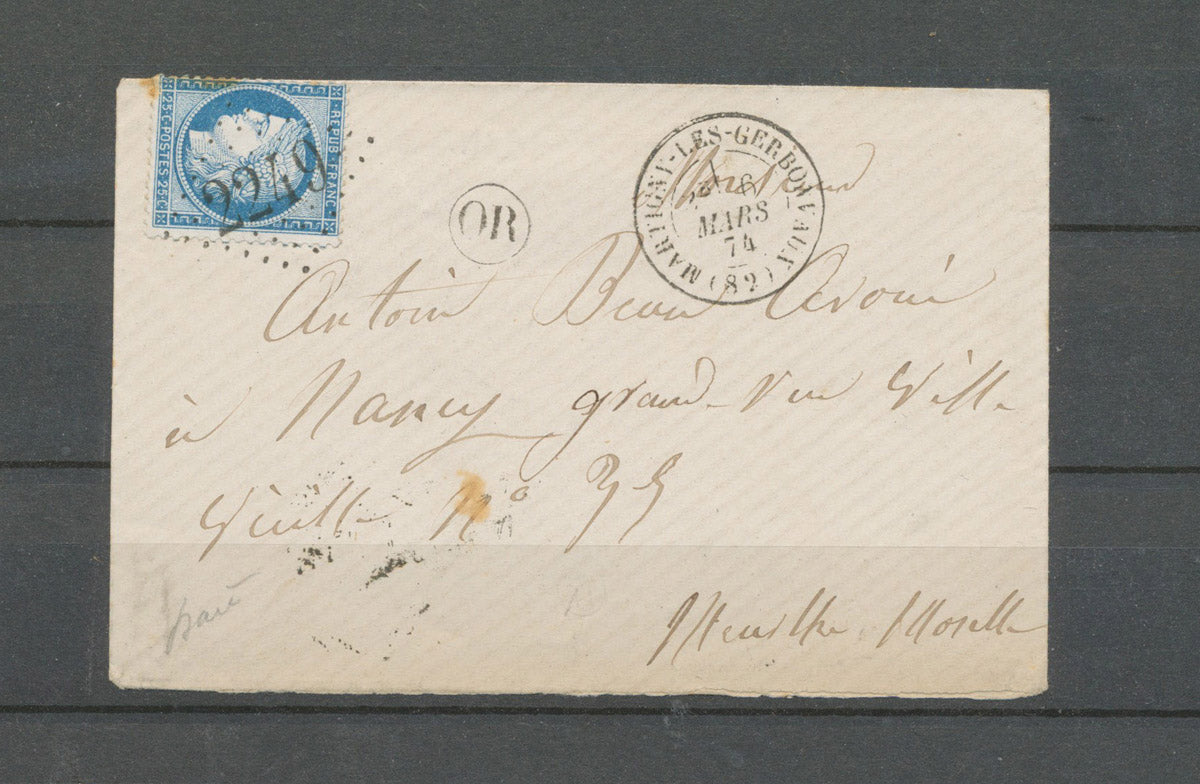 REPUB · FRANC ·
25 · C · POSTES · 25 · C ·
2249
OR
MARTIGNY-LES-GERBONVAUX (82)
6
MARS
74
Monsieur
Antoin Avoué
à Nancy grand rue Ville
Vieille N° 35
Meurthe Moselle